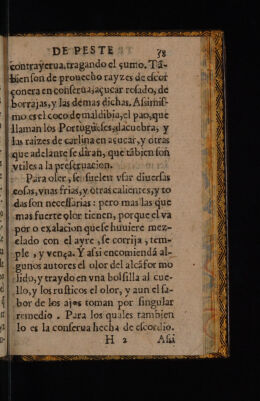 DE PESTE 78
contrayerua, tragando el çumo. Tã-
bien son de prouecho rayzes de escor
çonera en conserua, açucar rosado, de
borrajas, y las demas dichas. Assimis-
mo es el coco de maldibia, el pao, que
llaman los Portugueses, dacuebra, y
las raizes de carlina en açucar, y otras
que adelante se diran, que tãbien son
vtiles a la preseruacion.
Para oler, se suelen vsar diuersas
cosas, vnas frias, y otras calientes, y to
das son necessarias: pero mas las que
mas fuerte olor tienen, porque el va
por o exalacion que se huuiere mez-
clado con el ayre, se corrija, tem-
ple, y vença. Y assi encomiendã al-
gunos autores el olor del alcãfor mo
lido, y traydo en vna bolsilla al cue-
llo, y los rusticos el olor, y aun el sa-
bor de los ajos toman por singular
remedio. Para los quales tambien
lo es la conserua hecha de escordio.
H 2 Assi